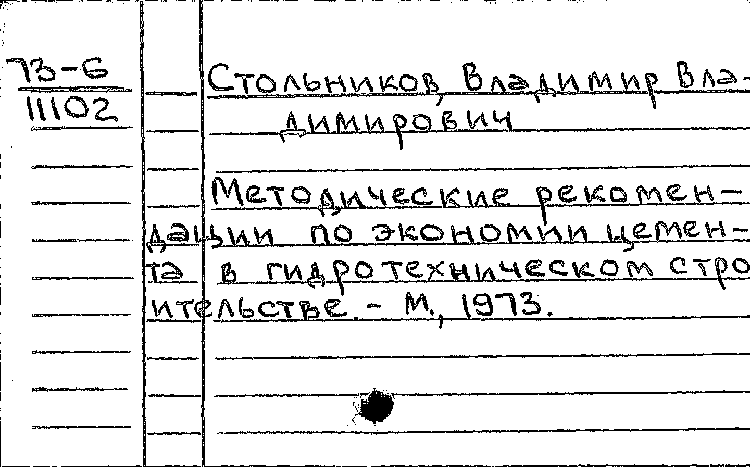 73-6
11102
Стольников, Владимир Вла-
димирович
Методические рекомен-
дации по экономии цемен-
та в гидротехническом стро
ительстве. - М., 1973.